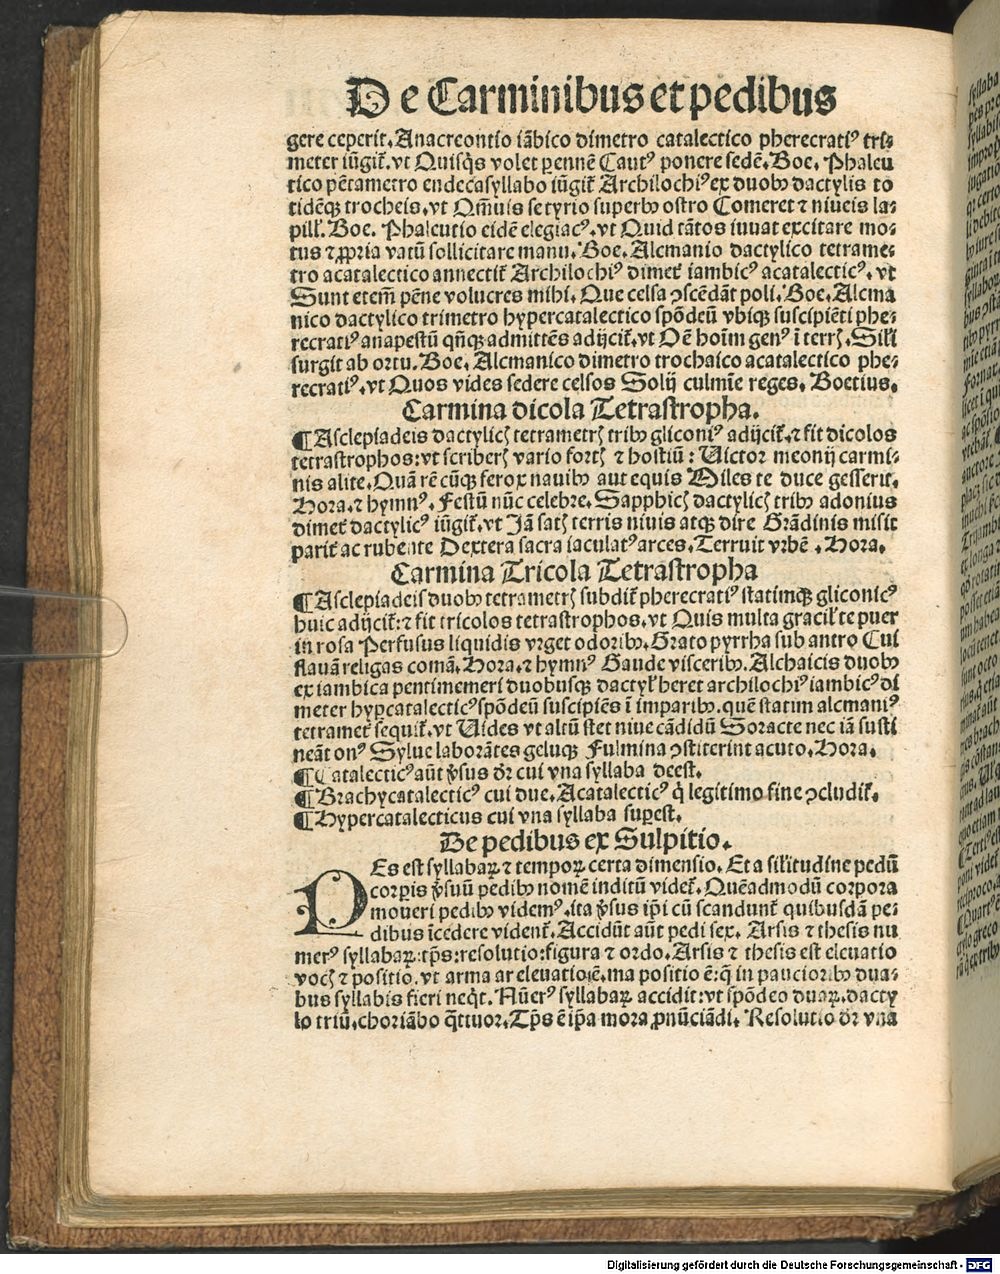 De Carminibus et pedibus
gere ceperit. Anacreontio iãbico dimetro catalectico pherecratiꝰ tri⸗
meter iũgit᷑. vt Quisq̃s volet pennẽ Cautꝰ ponere sedẽ. Boe. Phaleu
tico pẽtametro endecasyllabo iũgit᷑ Archilochiꝰ ex duobꝫ dactylis to
tidẽqꝫ trocheis. vt Qm̃uis se tyrio superbꝰ ostro Comeret ⁊ niueis la⸗
pill᷑. Boe. Phaleutio eidẽ elegiacꝰ. vt Quid tãtos iuuat excitare mo⸗
tus ⁊ ꝓpria vatũ sollicitare manu. Boe. Alcmanio dactylico tetrame⸗
tro acatalectico annectit᷑ Archilochiꝰ dimet᷑ iambicꝰ acatalecticꝰ. vt
Sunt etem̃ pẽne volucres mihi. Que celsa ꝯscẽdãt poli. Boe. Alcma
nico dactylico trimetro hypercatalectico spõdeũ vbiqꝫ suscipiẽti phe⸗
recratiꝰ anapestũ qñqꝫ admittẽs adijcit᷑. vt Oẽ hoĩm genꝰ ĩ terrꝭ. Sil᷑i
surgit ab ortu. Boe. Alcmanico dimetro trochaico acatalectico phe⸗
recratiꝰ. vt Quos vides sedere celsos Solij culmĩe reges. Boetius.
Carmina dicola Tetrastropha.
¶ Asclepiadeis dactylicꝭ tetrametrꝭ tribꝫ gliconiꝰ adijcit᷑. ⁊ fit dicolos
tetrastrophos: vt scriberꝭ vario fortꝭ ⁊ hostiũ: Uictor meonij carmi⸗
nis alite. Quã rẽ cũqꝫ ferox nauibꝫ aut equis Miles te duce gesserit.
Hora. ⁊ hymnꝰ. Festũ nũc celebre. Sapphicꝭ dactylicꝭ tribꝫ adonius
dimet᷑ dactylicꝰ iũgit᷑. vt Jã satꝭ terris niuis atqꝫ dire Grãdinis misit
parit᷑ ac rubente Dextera sacra iaculatꝰ arces. Terruit vrbẽ. Hora.
Carmina Tricola Tetrastropha
¶ Asclepiadeis duobꝫ tetrametrꝭ subdit᷑ pherecratiꝰ statimqꝫ gliconicꝰ
huic adijcit᷑: ⁊ fit tricolos tetrastrophos. vt Quis multa gracil᷑ te puer
in rosa Perfusus liquidis vrget odoribꝫ. Grato pyrrha sub antro Cui
flauã religas comã. Hora. ⁊ hymnꝰ Gaude visceribꝫ. Alchaicis duobꝫ
ex iambica pentimemeri duobusqꝫ dactyl᷑ heret archilochiꝰ iambicꝰ di
meter hypcatalecticꝰ spõdeũ suscipiẽs ĩ imparibꝫ. quẽ statim alcmaniꝰ
tetramet᷑ sequit᷑. vt Uides vt altũ stet niue cãdidũ Soracte nec iã susti
neãt onꝰ Sylue laborãtes geluqꝫ Flumina ꝯstiterint acuto. Hora.
¶ Catalecticꝰ aũt v̉sus dr̃ cui vna syllaba deest.
¶ Brachycatalecticꝰ cui due. Acatalecticꝰ q̇ legitimo fine ꝯcludit᷑.
¶ Hypercatalecticus cui vna syllaba suꝑest.
De pedibus ex Sulpitio.
PEs est syllabaꝝ ⁊ tempoꝝ certa dimensio. Et a sil᷑itudine pedũ
corꝑis v̉suũ pedibꝫ nomẽ inditũ videt᷑. Quẽadmodũ corpora
moueri pedibꝫ videmꝰ. ita v̉sus ip̃i cũ scandunt᷑ quibusdã pe⸗
dibus ĩcedere vident᷑. Accidũt aũt pedi sex. Arsis ⁊ thesis nu
merꝰ syllabaꝝ: tp̃s: resolutio: figura ⁊ ordo. Arsis ⁊ thesis est eleuatio
vocꝭ ⁊ positio. vt arma ar eleuatio ẽ. ma positio ẽ: q̇ in paucioribꝫ dua⸗
bus syllabis fieri neq̇t. Nũerꝰ syllabaꝝ accidit: vt spõdeo duaꝝ. dacty
lo triũ. choriãbo q̃ttuor. Tp̃s ẽ ip̃a mora ꝓnũciãdi. Resolutio dr̃ vna
Digitalisierung gefördert durch die Deutsche Forschungsgemeinschaft - DFG